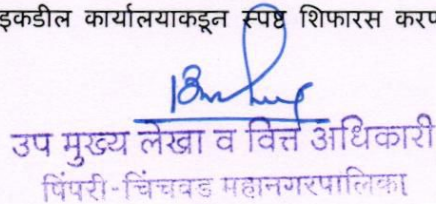 इकडील कार्यालयाकडून स्पष्ट शिफारस करण
उप मुख्य लेखा व वित्त अधिकारी
पिंपरी-चिंचवड महानगरपालिका